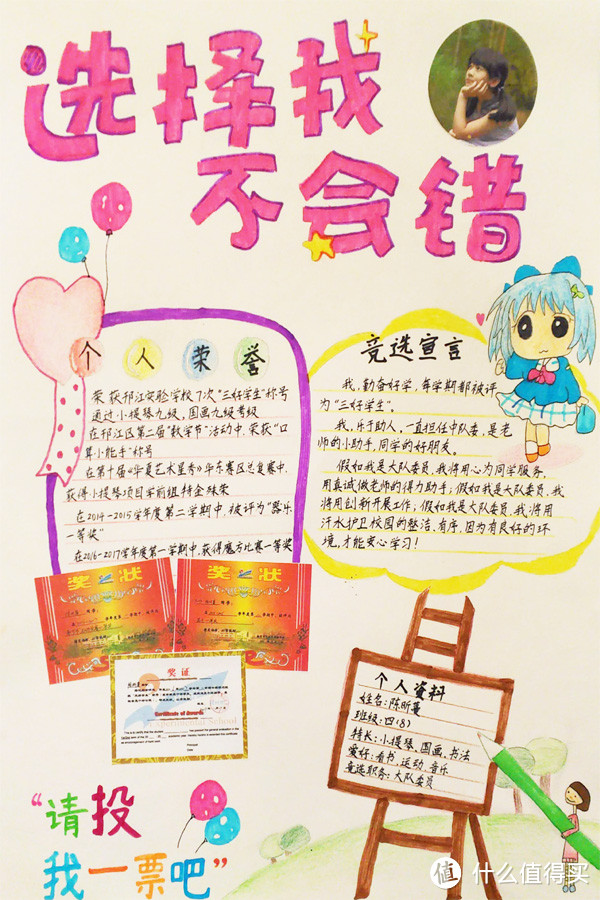 选择我
不会错
个人荣誉
荣获邗江实验学校7次"三好学生"称号
通过小提琴九级,国画九级考级
在邗江区第二届"数学节"活动中,荣获"口
算小能手"称号
在第十届《华夏艺术星秀》华东赛区总复赛中,
获得小提琴项目学前组特金殊荣
在2014-2015学年度第二学期中,被评为"器乐
一等奖"
在2016-2017学年度第一学期中,获得魔方比赛一等奖
竞选宣言
我,勤奋好学,每学期都被评
为"三好学生"。
我,乐于助人,一直担任中队委,是老
师的小助手,同学的好朋友。
假如我是大队委员,我将用心为同学服务,
用真诚做老师的得力助手;假如我是大队委员,我
将用创新开展工作;假如我是大队委员,我将用
汗水护卫校园的整洁、有序,因为有良好的环
境,才能安心学习!
奖状
奖状
奖证
Certificate of Awards
个人资料
姓名:陈昕蔓
班级:四(8)
特长:小提琴、国画、书法
爱好:看书、运动、音乐
竞选职务:大队委员
"请投
我一票吧"
值 什么值得买